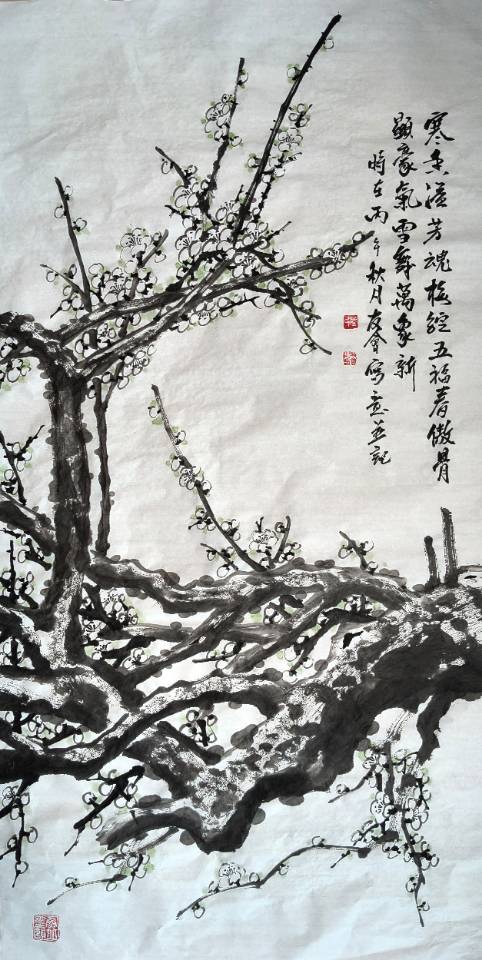 寒香溢芳魂梅經五福春傲骨
顯豪氣雪舞萬象新
時在丙午秋月友會寫意並記